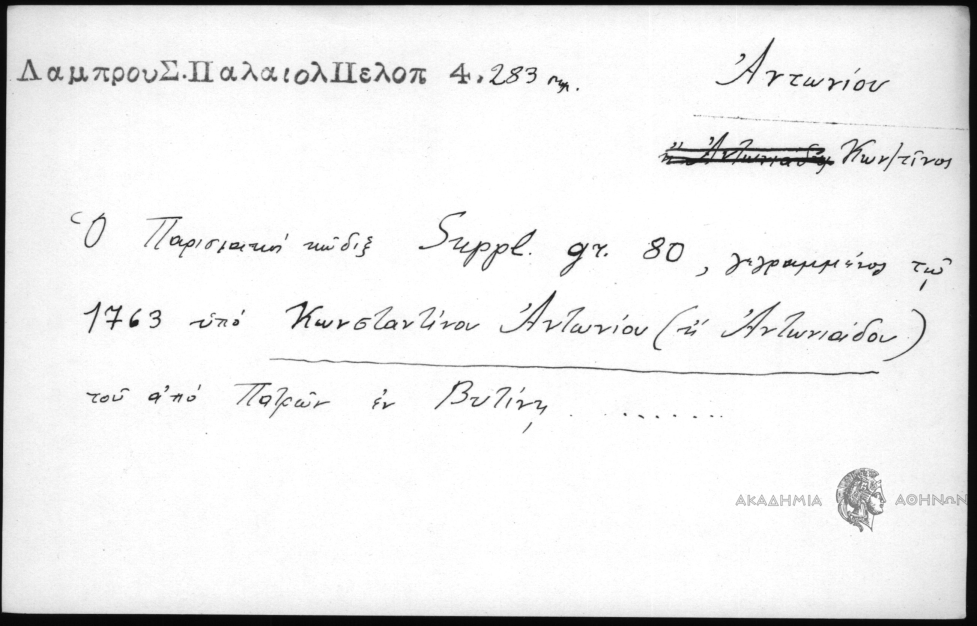 ΛαμπρουΣ.ΠαλαιολΠελοπ 4.283 σημ.
Ἀντωνίου
ἢ Ἀντωνιάδης Κων/τῖνος
Ὁ Παρισιακός κῶδιξ Suppl. gr. 80, γεγραμμένος τῷ
1763 ὑπό Κωνσταντίνου Ἀντωνίου (ἢ Ἀντωνιάδου)
τοῦ ἀπό Πατρῶν ἐν Βυτίνῃ ..........
ΑΚΑΔΗΜΙΑ ΑΘΗΝΩΝ